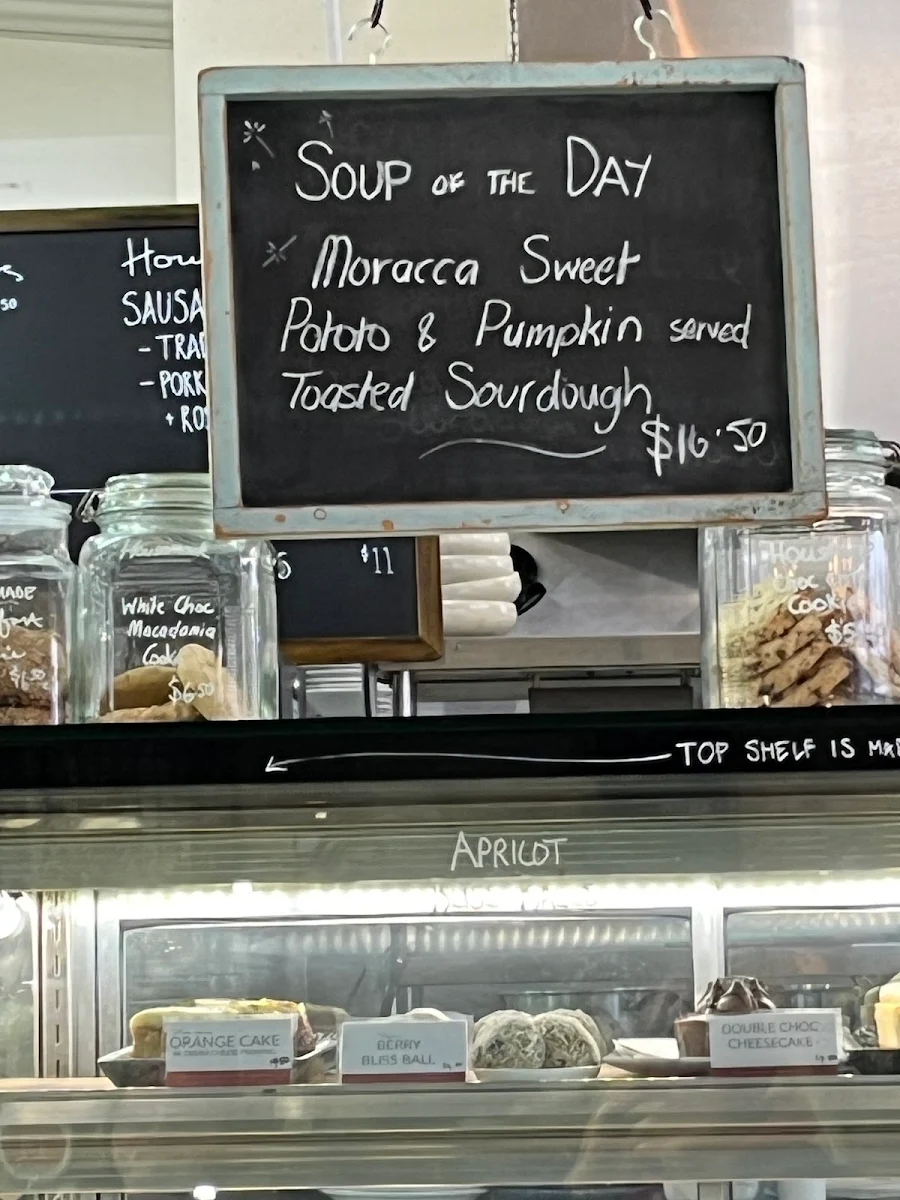 SOUP OF THE DAY
Moracca Sweet
Pototo & Pumpkin served
Toasted Sourdough
$16.50
50
Hou
SAUSA
- TRAD
- PORK
+ ROS
5
$11
MADE
White Choc
Macadamia
Cook
$6.50
House
Choc
Cooki
$5
TOP SHELF IS MA
APRICOT
ORANGE CAKE
BERRY
BLISS BALL
DOUBLE CHOC
CHEESECAKE